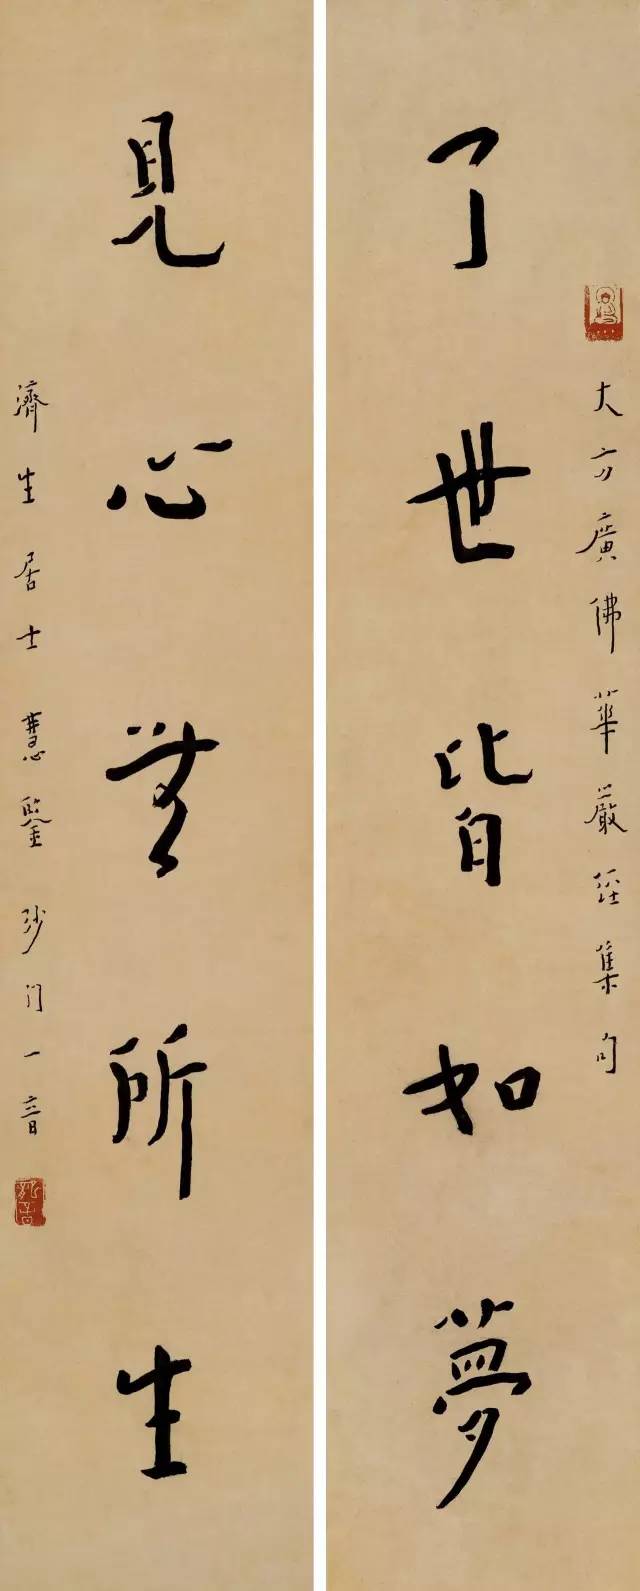 大方廣佛華嚴經集句
了世皆如夢
見心無所生
濟生居士慧鑒沙门一音